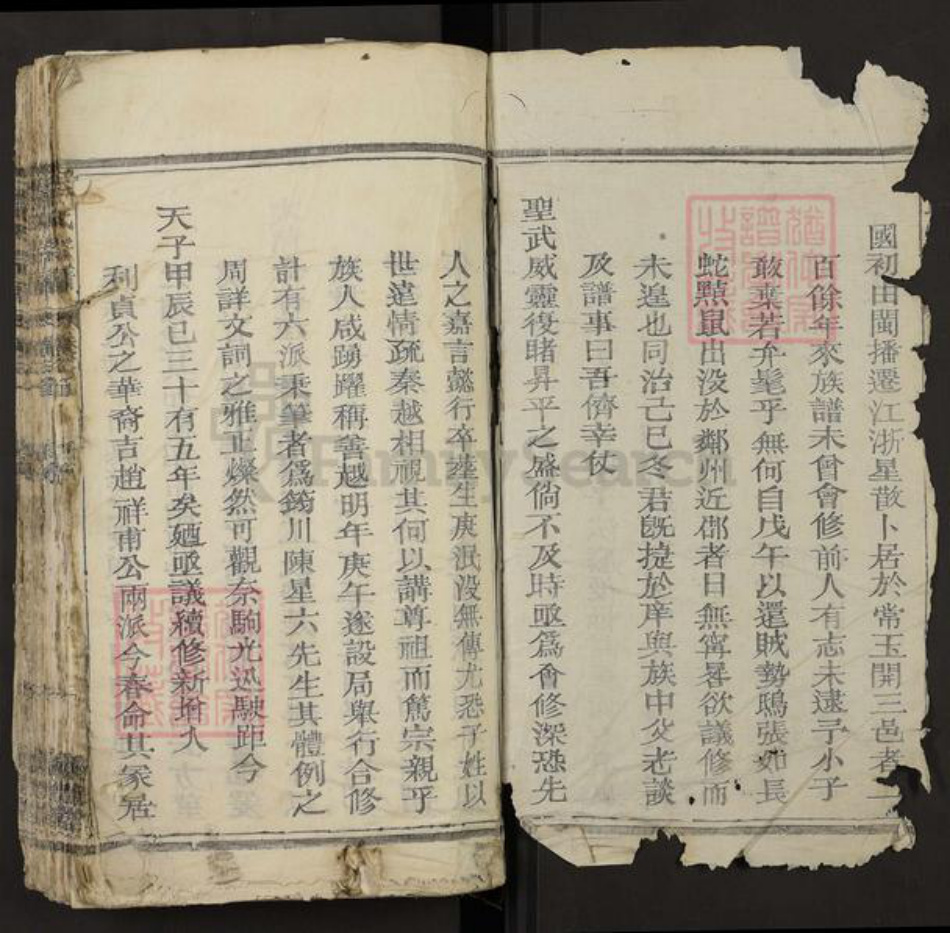 國初由閩播遷江浙星散卜居於常玉開三邑者二
百餘年來族譜未曾會修前人有志未逮予小子
敢棄若弁髦乎無何自戊午以還賊勢鴟張如長
蛇黠鼠出没於鄰州近郡者日無寧晷欲議修而
未遑也同治己巳冬君旣捷於庠與族中父老談
及譜事曰吾儕幸仗
聖武威靈復睹昇平之盛倘不及時亟爲會修深恐先
人之嘉言懿行卒塟生庚泯没無傳尤恐子姓以
世遠情疏秦越相視其何以講尊祖而篤宗親乎
族人咸踴躍稱善越明年庚午遂設局舉行合修
計有六派秉筆者爲筠川陳星六先生其體例之
周詳文詞之雅正燦然可觀奈駒光迅駛距今
天子甲辰已三十有五年矣廼亟議續修新增入
利貞公之華裔吉趙祥甫公兩派今春命其冡居
FamilySearch